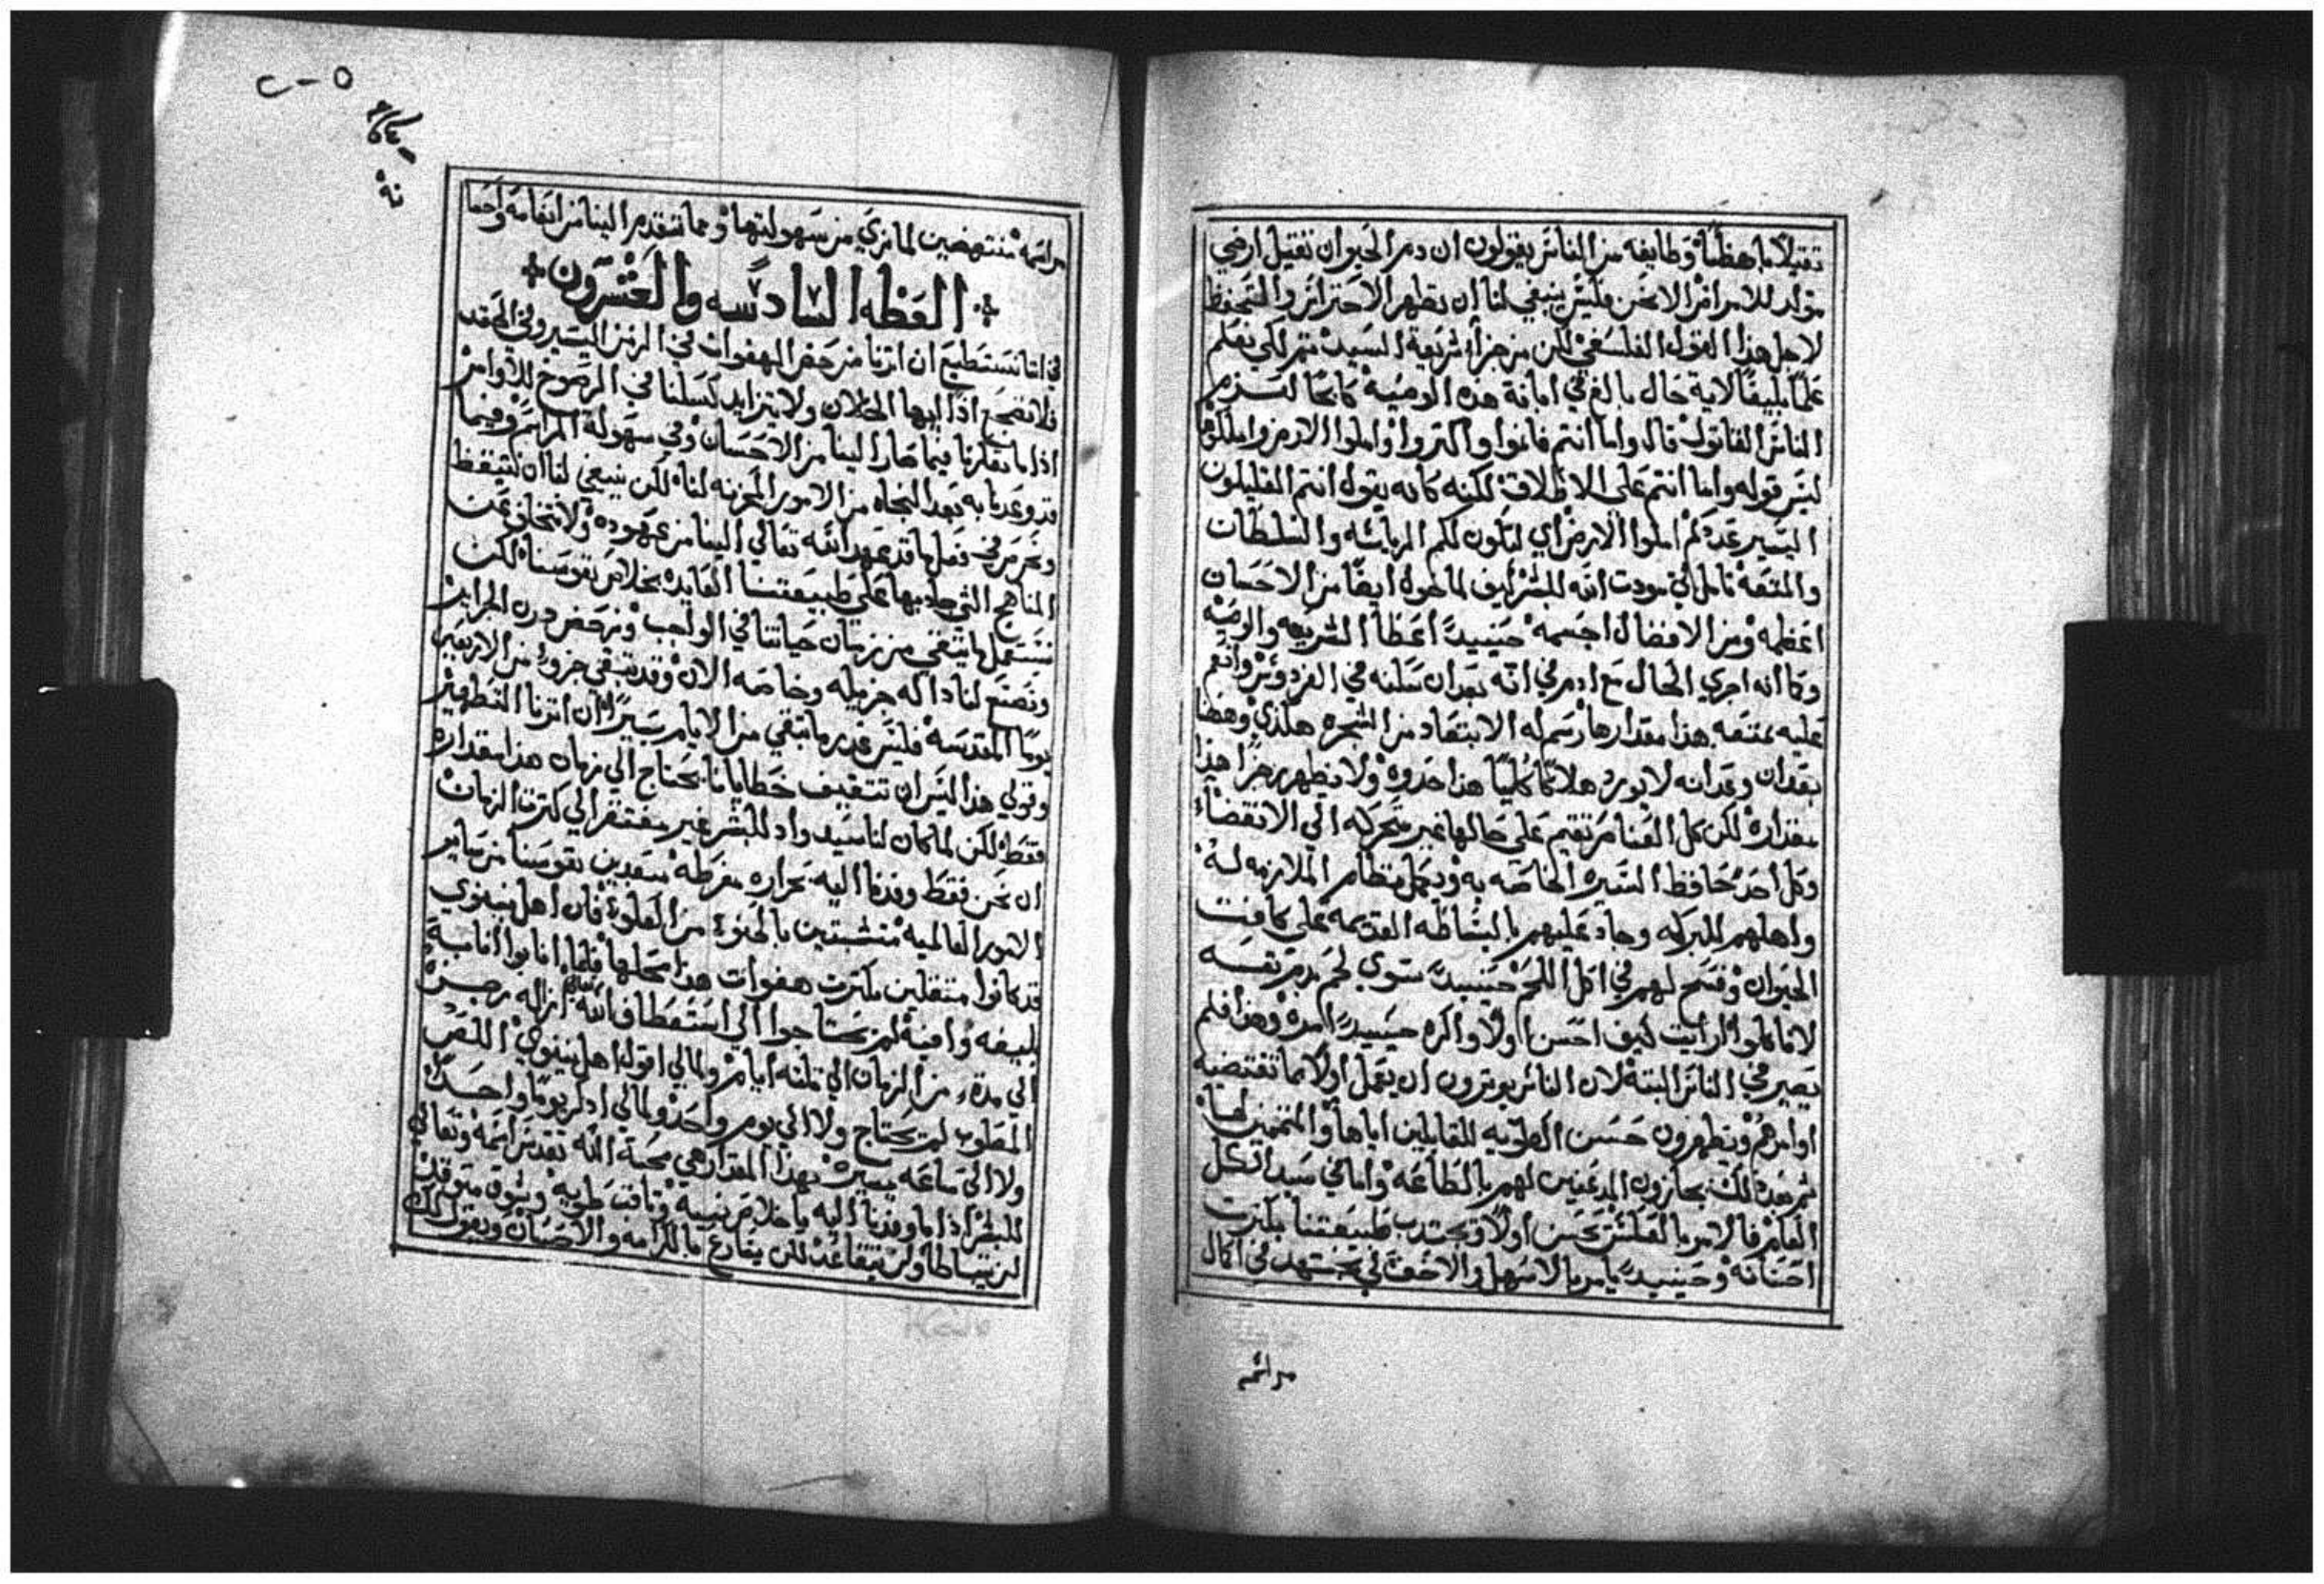 تقيلاً باهظًا وطايفه من الناس يقولون ان دم الحيوان تقيل ارضي
مولد للامراض الا نحن فليس ينبغي لنا ان نظهر الاحتراس والتحفظ
لاجل هذا القول الفلسفي لكن من جزا شريعة السيد تم لكي نعلم
علمًا بليغًا لاية حال بالغ في ابانة هذه الوصيه كابحًا
الناس القاتول قال واما انتم فانموا واكتروا واملوا الارض واملكوها
ليس قوله واما انتم علي الاطلاق لكنه كانه يقول انتم القليلون
اليسير عددكم املوا الارض اي لتكون لكم الرياسه والسلطان
والمتعه تامل لي مودت الله للبشر كيف لما خول ايضًا من الاحسان
اعظمه ومن الافضال اجسمه حينيدً اعطا الشريعه والوصيه
وكما انه اجري الحال مع ادم في انه بعد ان سلنه في الفردوس وانعم
عليه بمتعه هذا مقدارها رسم له الابتعاد من الشجره هكذي وههنا
بعد ان وعد انه لا يورد هلاكًا كليًا هذا حدوه ولا يظهر رجزًا هذا
مقداره لكن كل العناصر تقيم علي حالها غير متحركه الي الانقضاء
وكل احد حافظ السيره الخاصه به ويجمل منظام الملازمه له
واهلهم للبركه وجاد عليهم بالبساطه القديمه علي كافت
الحيوان وفسح لهم في اكل اللحم حينيدً سوي لحم بدم نفسه
لا تاكلوا ارايت كيف احسن اولاً واكرم حينيدً امره وهذا فلم
يصير في الناس البته لان الناس يوترون ان يعمل اولاً بما تقتضيه
اوامرهم ويظهرون حسن الطويه للقابلين اياها والمتممين لها
تم بعد ذلك يجازون المدعنين لهم بالطاعه واما في سيد الكل
العام فالامر بالعكس يحسن اولاً ويجتدب طبيعتنا بكترت
احسانه وحينيدً يامر بالاسهل والاخف لكي نجتهد في اكمال
مراسمه
مراسمه منتهضين لما نري من سهولتها ومما تقدم الينا من انعامه واحسا
العظه السادسه والعشرون
في اننا نستطيع ان اترنا نرحض الهفوات في الزمن اليسير وفي
فلا نضجع اذًا ايها الخلان ولا يتزايد كسلنا في الرضوخ للاوامر
اذا ما تفكرنا فيما صار الينا من الاحسان وفي سهولة المراسم وفيما
قد وعدنا به بعد النجاه من الامور المحزنه لناه لكن ينبغي لنا ان نتيقظ
ونحرص في فعل ما قد عهد الله تعالي الينا من عهوده ولا نتخلف عن
المناهج التي جاد بها علي طبيعتنا العايده بخلاص نفوسنا لكن
نستعمل ما يتبقي من زمان حياتنا في الواجب ونرحض درن الجرايم
ونصنع لنا دالة جزيله وخاصه الان وقد تبقي جزوء من الاربعين
يومًا المقدسه فليس قدر ما تبقي من الايام يسيرًا ان اترنا التطهير
وقولي هذا ليس ان تتقيف خطايانا يحتاج الي زمان هذا مقداره
فقط لكن لما كان لنا سيد واد للبشر غير مفتقر الي كترت الزمان
ان نحن فقط وفدنا اليه بحراره مفرطه مبعدين نفوسنا من ساير
الامور العالميه متشبتين بالجنوء من العلوه فان اهل نينوي
قد كانوا متقلين بكترت هفوات هذا محلها فلما انابوا انابةً
بليغه وافيه لم يحتاجوا الي استعطاف الله ازاله رجزه
الي مدة من الزمان الي تلته ايام ولمالي اقول اهل نينوي اللص
المصلوب لم يحتاج ولا الي يوم واحد ولمالي اذكر يومًا واحدًا
ولا الي ساعه يسيره بهذا المقدار هي محبة الله تقدس اسمه وتعالي
للبشر اذا ما وفدنا اليه باخلاص نيه وتاقت طويه وشوق متوقد
لن يتباطا ولن يتقاعد لكن يقارع بالكرامه والاحسان ويقول لك